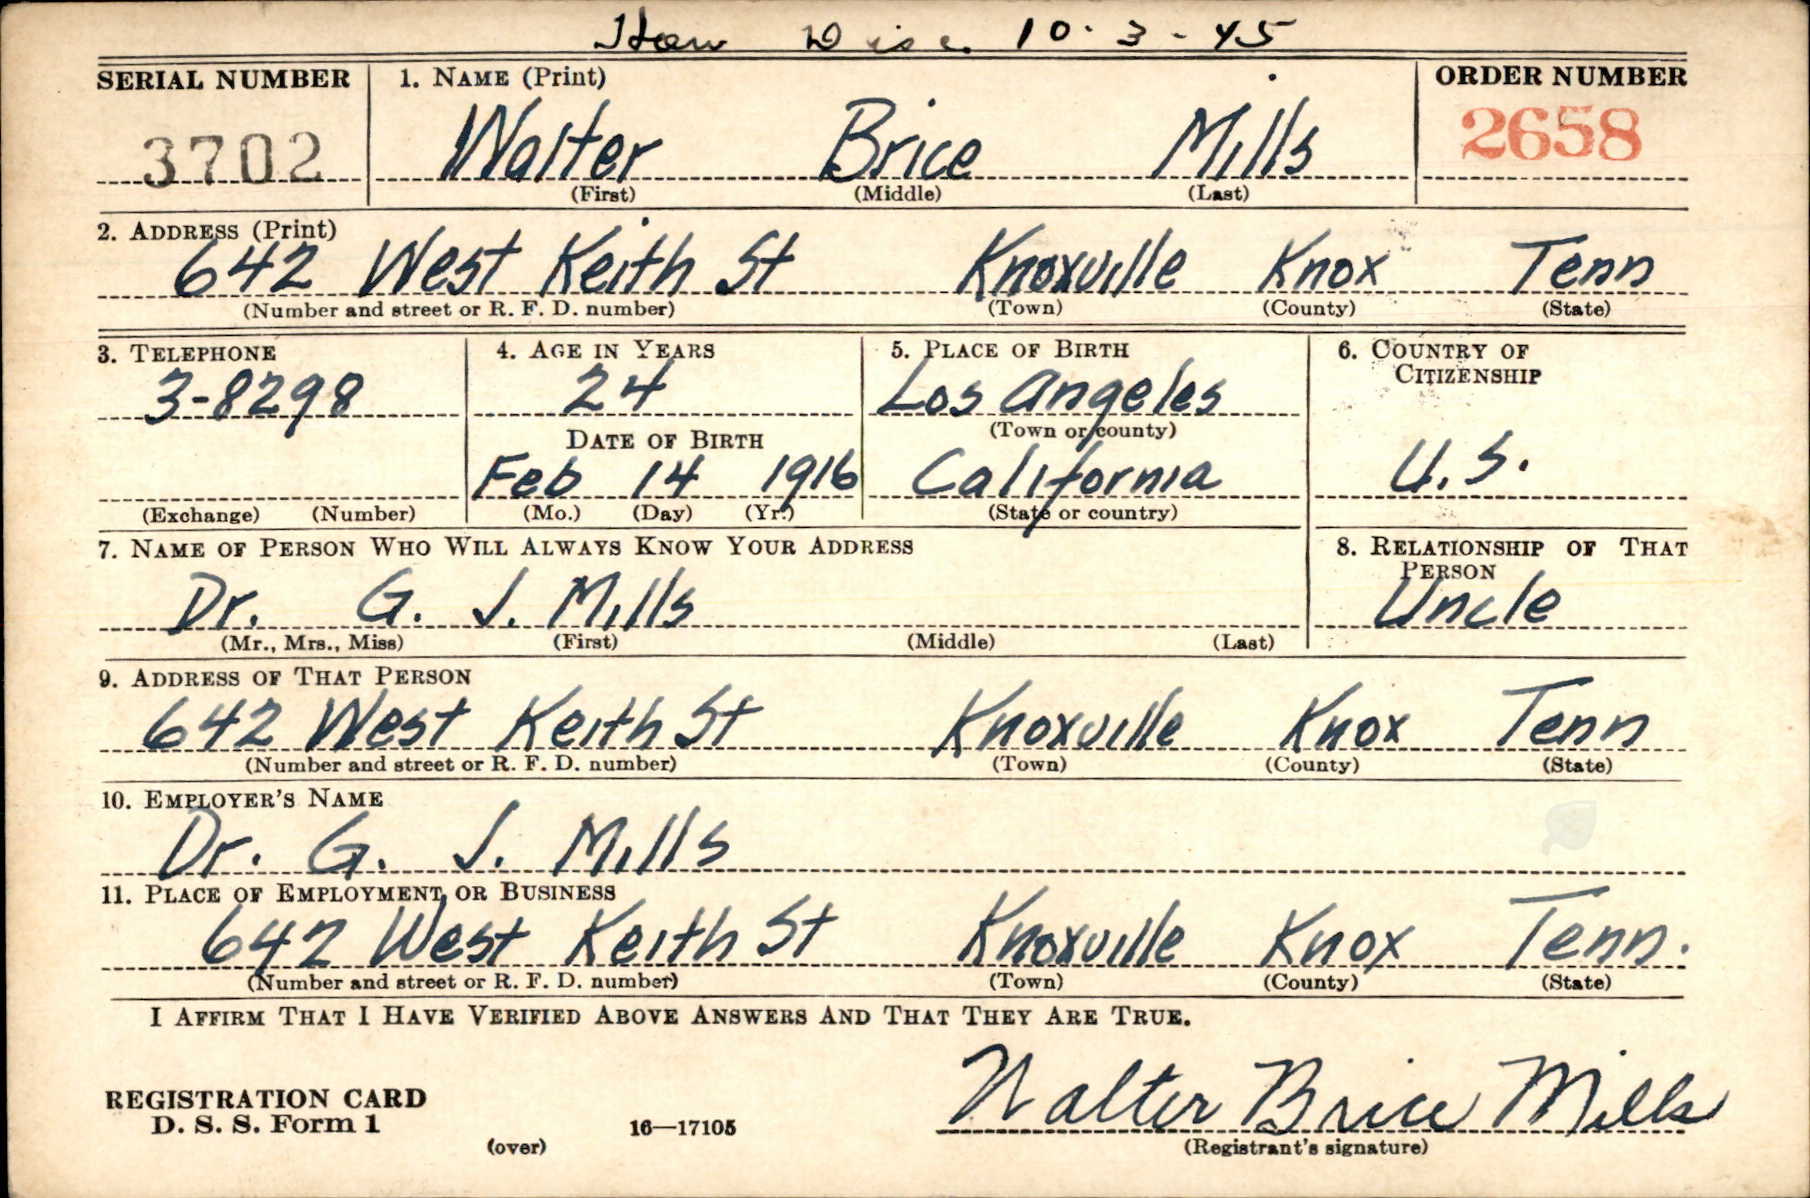 Hon Disc. 10-3-45
SERIAL NUMBER 1. NAME (Print) ORDER NUMBER
3702 Walter Brice Mills 2658
(First) (Middle) (Last)
2. ADDRESS (Print)
642 West Keith St Knoxville Knox Tenn
(Number and street or R. F. D. number) (Town) (County) (State)
3. TELEPHONE 4. AGE IN YEARS 5. PLACE OF BIRTH 6. COUNTRY OF CITIZENSHIP
3-8298 24 Los Angeles
(Town or county)
DATE OF BIRTH
Feb 14 1916 California U.S.
(Exchange) (Number) (Mo.) (Day) (Yr.) (State or country)
7. NAME OF PERSON WHO WILL ALWAYS KNOW YOUR ADDRESS 8. RELATIONSHIP OF THAT PERSON
Dr. G. J. Mills Uncle
(Mr., Mrs., Miss) (First) (Middle) (Last)
9. ADDRESS OF THAT PERSON
642 West Keith St Knoxville Knox Tenn
(Number and street or R. F. D. number) (Town) (County) (State)
10. EMPLOYER'S NAME
Dr. G. J. Mills
11. PLACE OF EMPLOYMENT OR BUSINESS
642 West Keith St Knoxville Knox Tenn.
(Number and street or R. F. D. number) (Town) (County) (State)
I AFFIRM THAT I HAVE VERIFIED ABOVE ANSWERS AND THAT THEY ARE TRUE.
Walter Brice Mills
REGISTRATION CARD
D. S. S. Form 1 16—17105
(over) (Registrant's signature)